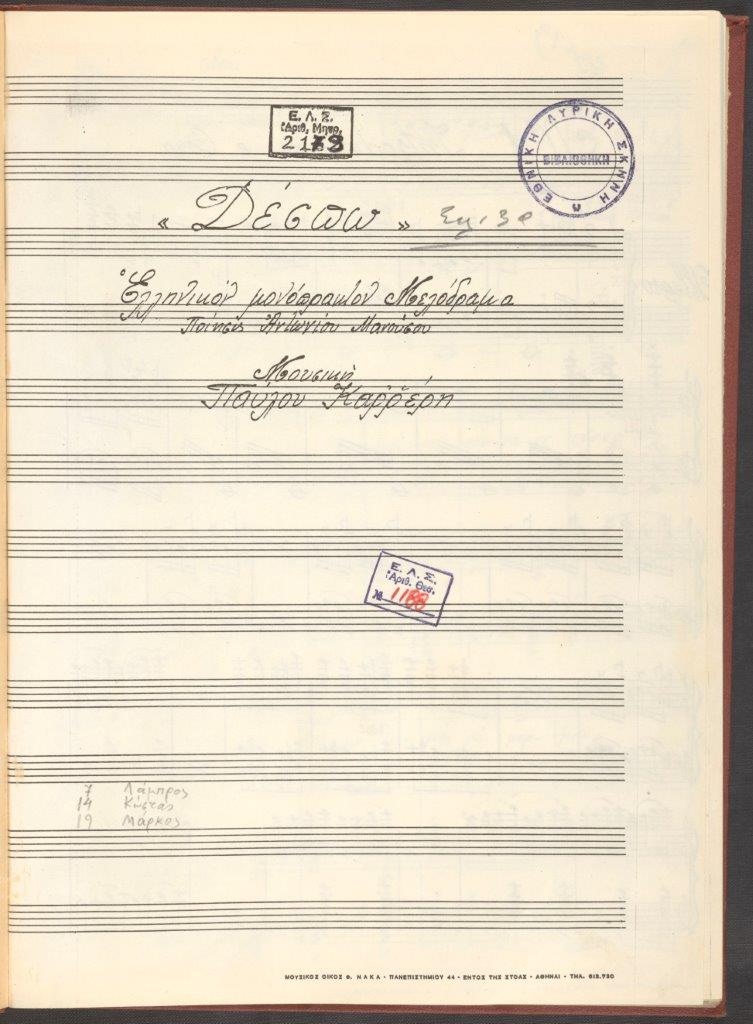 Ε. Λ. Σ.
Ἀριθ. Μητρ.
2173
ΕΘΝΙΚΗ ΛΥΡΙΚΗ ΣΚΗΝΗ
ΒΙΒΛΙΟΘΗΚΗ
« Δέσπω »
Ἑλληνικὸν μονόπρακτον Μελόδραμα
Ποίησις Ἀντωνίου Μανούσου
Μουσικὴ
Παύλου Καῤῥέρη
Ε. Λ. Σ.
Ἀριθ. Θεσ.
№ 1188
7 Λάμπρος
14 Κώστας
19 Μάρκος
ΜΟΥΣΙΚΟΣ ΟΙΚΟΣ Θ. ΝΑΚΑ - ΠΑΝΕΠΙΣΤΗΜΙΟΥ 44 - ΕΝΤΟΣ ΤΗΣ ΣΤΟΑΣ - ΑΘΗΝΑΙ - ΤΗΛ. 612.730